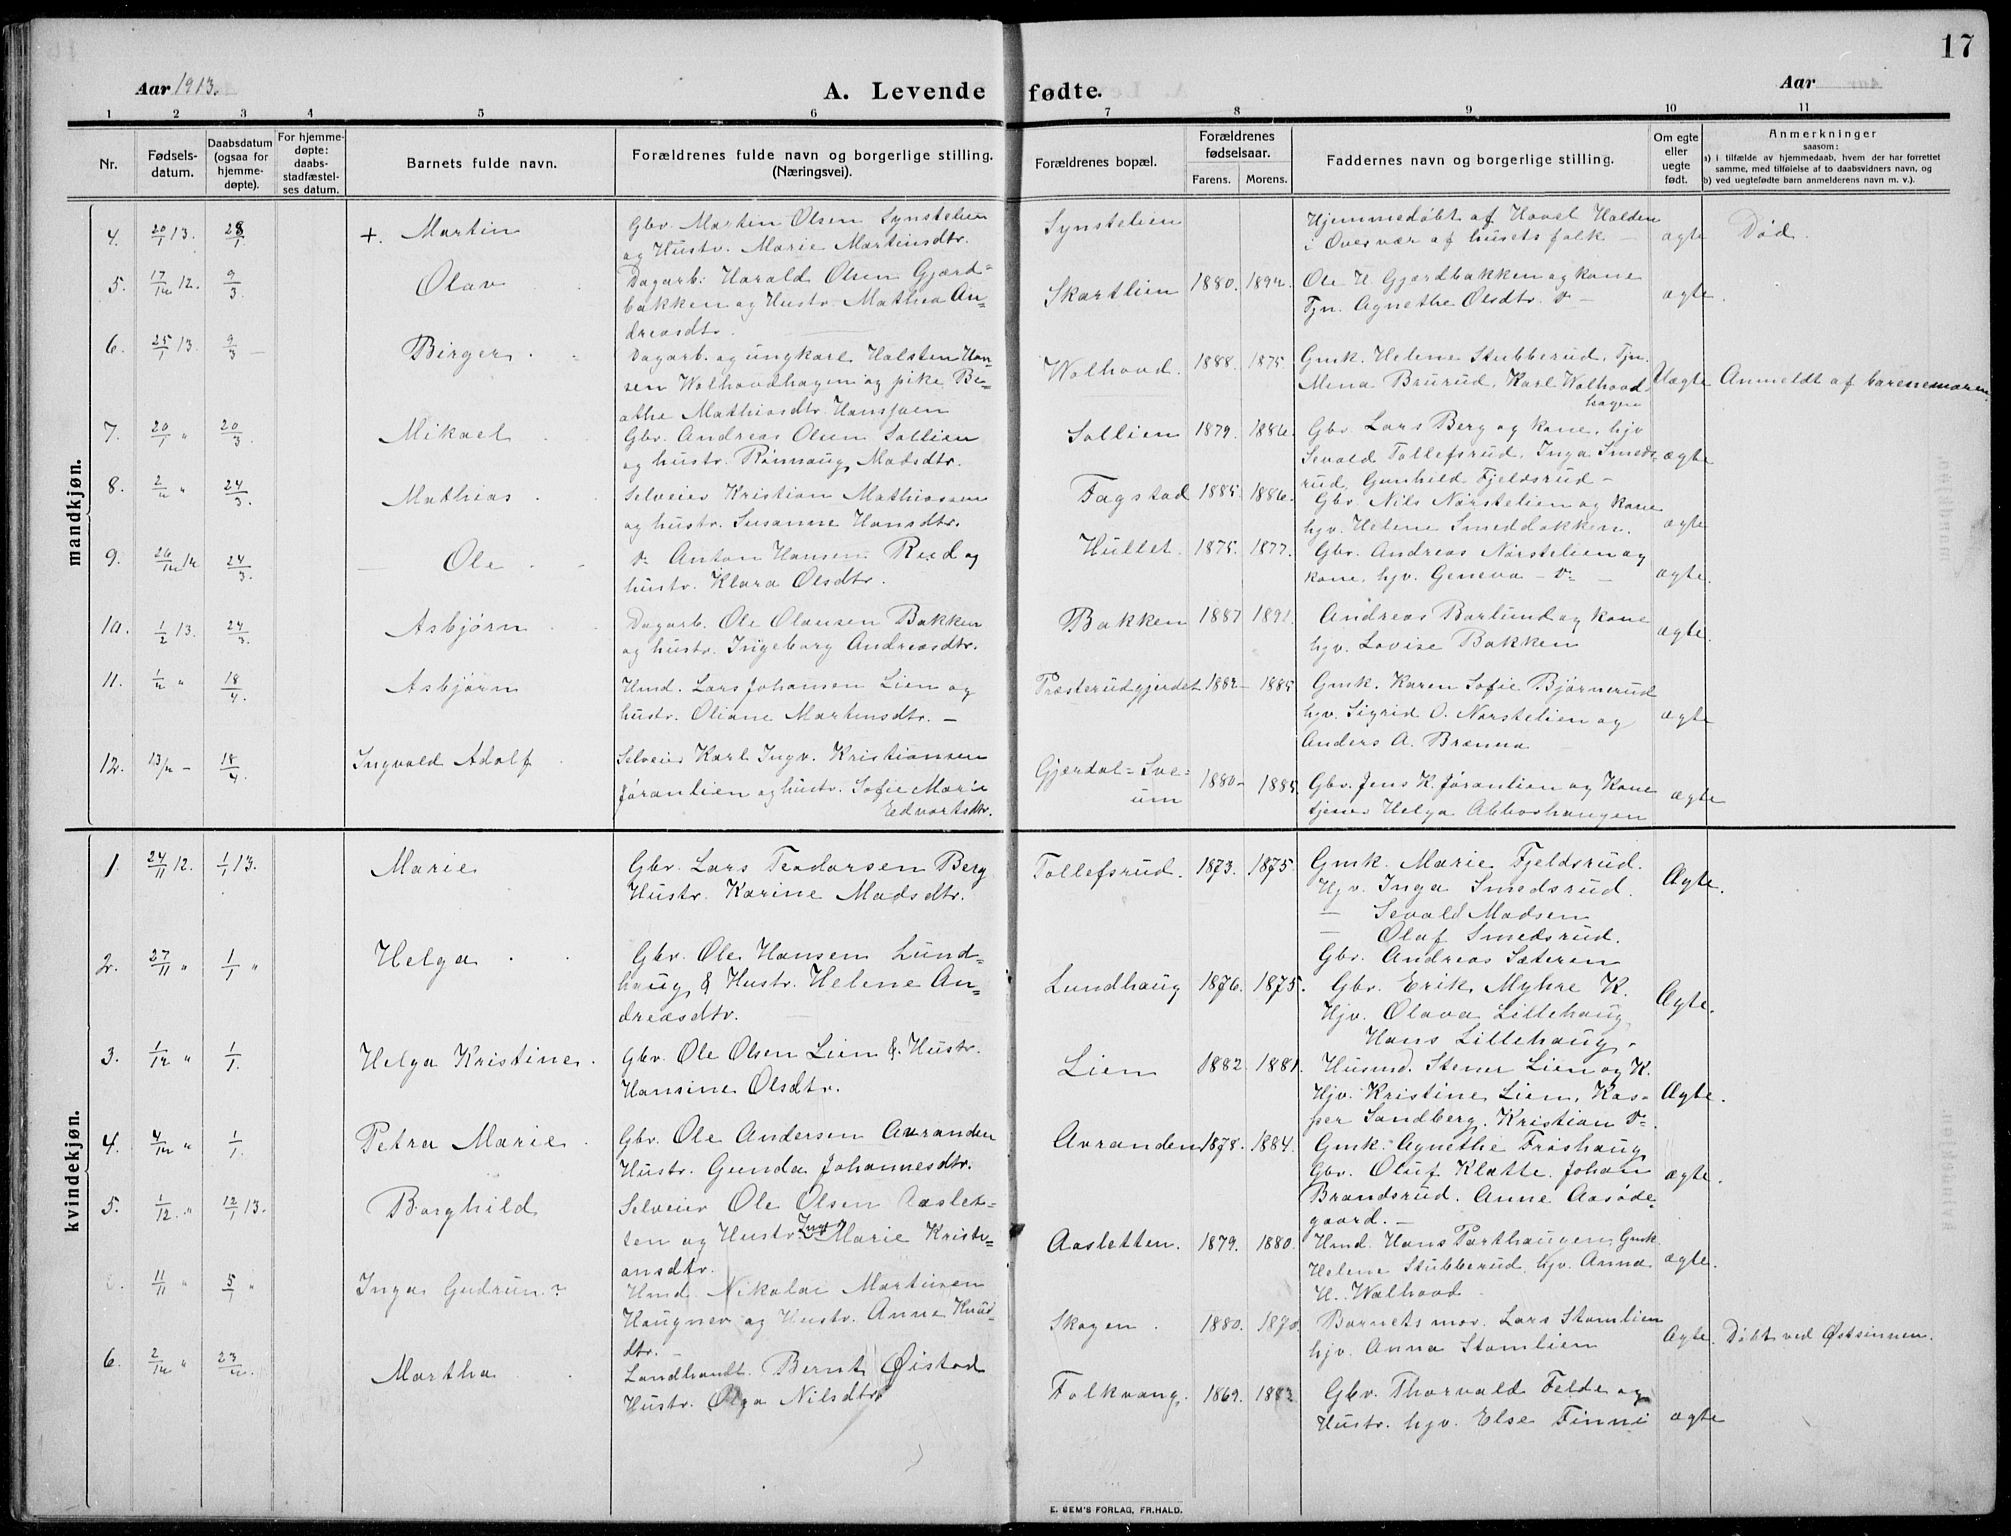 17
Aar 1913.
A. Levende fødte.
Aar
1 2 3 4 5 6 7 8 9 10 11
Nr.
Fødsels-
datum.
Daabsdatum
(ogsaa for
hjemme-
døpte).
For hjemme-
døpte:
daabs-
stadfæstel-
ses datum.
Barnets fulde navn.
Forældrenes fulde navn og borgerlige stilling.
(Næringsvei).
Forældrenes bopæl.
Forældrenes
fødselsaar.
Farens. Morens.
Faddernes navn og borgerlige stilling.
Om egte
eller
uegte
født.
Anmerkninger
saasom:
a) i tilfælde av hjemmedaab, hvem der har forrettet
samme, med tilføielse af to daabsvidners navn, og
b) ved uegtefødte barn anmelderens navn m. v.).
mandkjøn.
4. 20/1 13. 28/1 +. Martin
Gbr. Marten Olsen Synstelien
og Hustr. Marie Martinsdtr.
Synstelien
Hjemmedøbt af Hovel Halden
i Overvær af husets folk —
ægte Død.
5. 17/12 12. 9/3 Olav
Dagarb: Harald Olsen Gjærd=
bakken og Hustr. Mathea An=
dreasdtr.
Skartlien 1880. 1892.
Ole H. Gjærdbakken og kone
Tjn. Agnethe Olsdtr. do —
ægte.
6. 25/1 13. 9/3 — Birger
Dagarb. og ungkarl Halsten Han=
sen Wolhoodhagen og pike Be=
athe Mathiasdtr. Hansjoen
Wolhood. 1888. 1875.
Gmk. Helene Stubberud. Tjn.
Mina Brurud. Karl Wolhood
hagen
Uægte Anmeldt af barnemoren.
7. 20/1 " 20/3. Mikael
Gbr. Andreas Olsen Sollien
og hustr. Rønnaug Madsdtr.
Sollien 1879. 1886.
Gbr. Lars Berg og kone, hjv
Sevald Tollefsrud, Inga Smeds=
rud, Gunhild Fjeldsrud —
ægte
8. 2/2 " 24/3. Mathias
Selveier Kristian Mathiassen
og hustr. Susanne Hansdtr.
Fagstad 1885. 1886.
Gbr. Nils Nørstelien og kone
hjv. Helene Smedbakken.
ægte
9. 26/12 12 24/3. — Ole
do Anton Hansen Rud og
hustr. Klara Olsdtr.
Hullet. 1875. 1877.
Gbr. Andreas Nørstelien og
kone. hjv. Geneva — do —
ægte.
10. 1/2 13. 24/3. Asbjørn
Dagarb. Ole Olausen Bakken
og hustr. Ingeborg Andreasdtr.
Bakken 1887 1891.
Andreas Barlund og kone
hjv. Lovise Bakken
ægte.
11. 1/2 " 18/4. Asbjørn
Hmd. Lars Johansen Lien og
hustr. Oliane Martinsdtr. —
Præsterudgjerdet 1882 — 1885
Gmk. Karen Sofie Bjørnerud
hjv. Sigrid O. Nørstelien og
Anders A. Brænna
ægte
12. 13/2 — 18/4. Ingvald Adolf
Selveier Karl Ingv. Kristiansen
Jøranlien og hustr. Sofie Marie
Edvartsdtr.
Gjærdal=Sve=
um 1880 — 1885.
Gbr. Jens K. Jøranlien og Kone
tjener Helga Abborhaugen
ægte
kvindekjøn.
1. 24/11 12. 1/1 13. Marie
Gbr. Lars Teodorsen Berg
Hustr. Karine Madsdtr.
Tollefsrud. 1873. 1875.
Gmk. Marie Fjeldsrud.
Hjv. Inga Smedsrud.
— Sevald Madsen
— Olaf Smedsrud.
Gbr. Andreas Sæteren
Ægte.
2. 27/11 " 1/1 " Helga
Gbr. Ole Hansen Lund=
haug & Hustr. Helene An=
dreasdtr.
Lundhaug 1876. 1875.
Gbr. Erik Myhre K.
Hjv. Olava Lillehaug
Hans Lillehaug.
Ægte.
3. 1/12 " 1/1. Helga Kristine.
Gbr. Ole Olsen Lien & Hustr.
Hansine Olsdtr.
Lien 1882. 1881.
Husmd. Stener Lien og K.
Hjv. Kristine Lien. Kas=
per Sandberg. Kristian do.
Ægte.
4. 4/12 " 1/1. Petra Marie
Gbr. Ole Andersen Avranden
Hustr. Gunda Johannesdtr.
Avranden 1878. 1884.
Gmk. Agnethe Frøshaug
Gbr. Oluf Klætte. Johan
Brandsrud. Anne Aasøde=
gaard. —
ægte.
5. 1/12. " 12/1 13. Borghild
Selveier Ole Olsen Aaslet=
ten og Hustr. Marie Kristi=
ansdtr.
Aasletten. 1879. 1880.
Hmd. Hans Parthaugen. Gmk
Helene Stubberud. hjv. Anna
H. Wolhood
ægte.
11/11 " 5/1 " Inga Gudrun ?
Hmd. Nikolai Martinsen
Haugner og Hustr. Anne Knud=
dtr. —
Skogen. 1880. 1870.
Barnets mor. Lars Stomlien
hjv. Anna Stomlien
Ægte. Døbt ved Østsinnen.
6. 2/12 " 23/2. Martha
Landhandl. Bernt Øistad
Hustr. Olga Nilsdtr
Folkvang. 1869. 1883.
Gbr. Thorvald Felde og
Hustr. hjv. Else Finni
ægte
E. SEM'S FORLAG, FR.HALD.